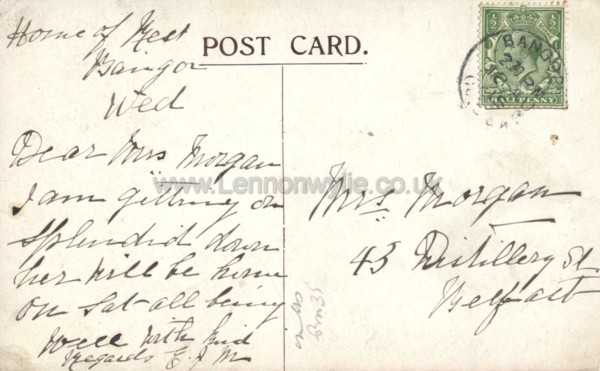 Home of Rest
Bangor
Wed
POST CARD.
BANGOR
HALFPENNY
Dear Mrs Morgan
I am gitting on
splendid down
her will be home
on Sat all being
Well with kind
Regards E. J. M
Mrs Morgan
43 Distillery St
Belfast
www.Lennonwylie.co.uk